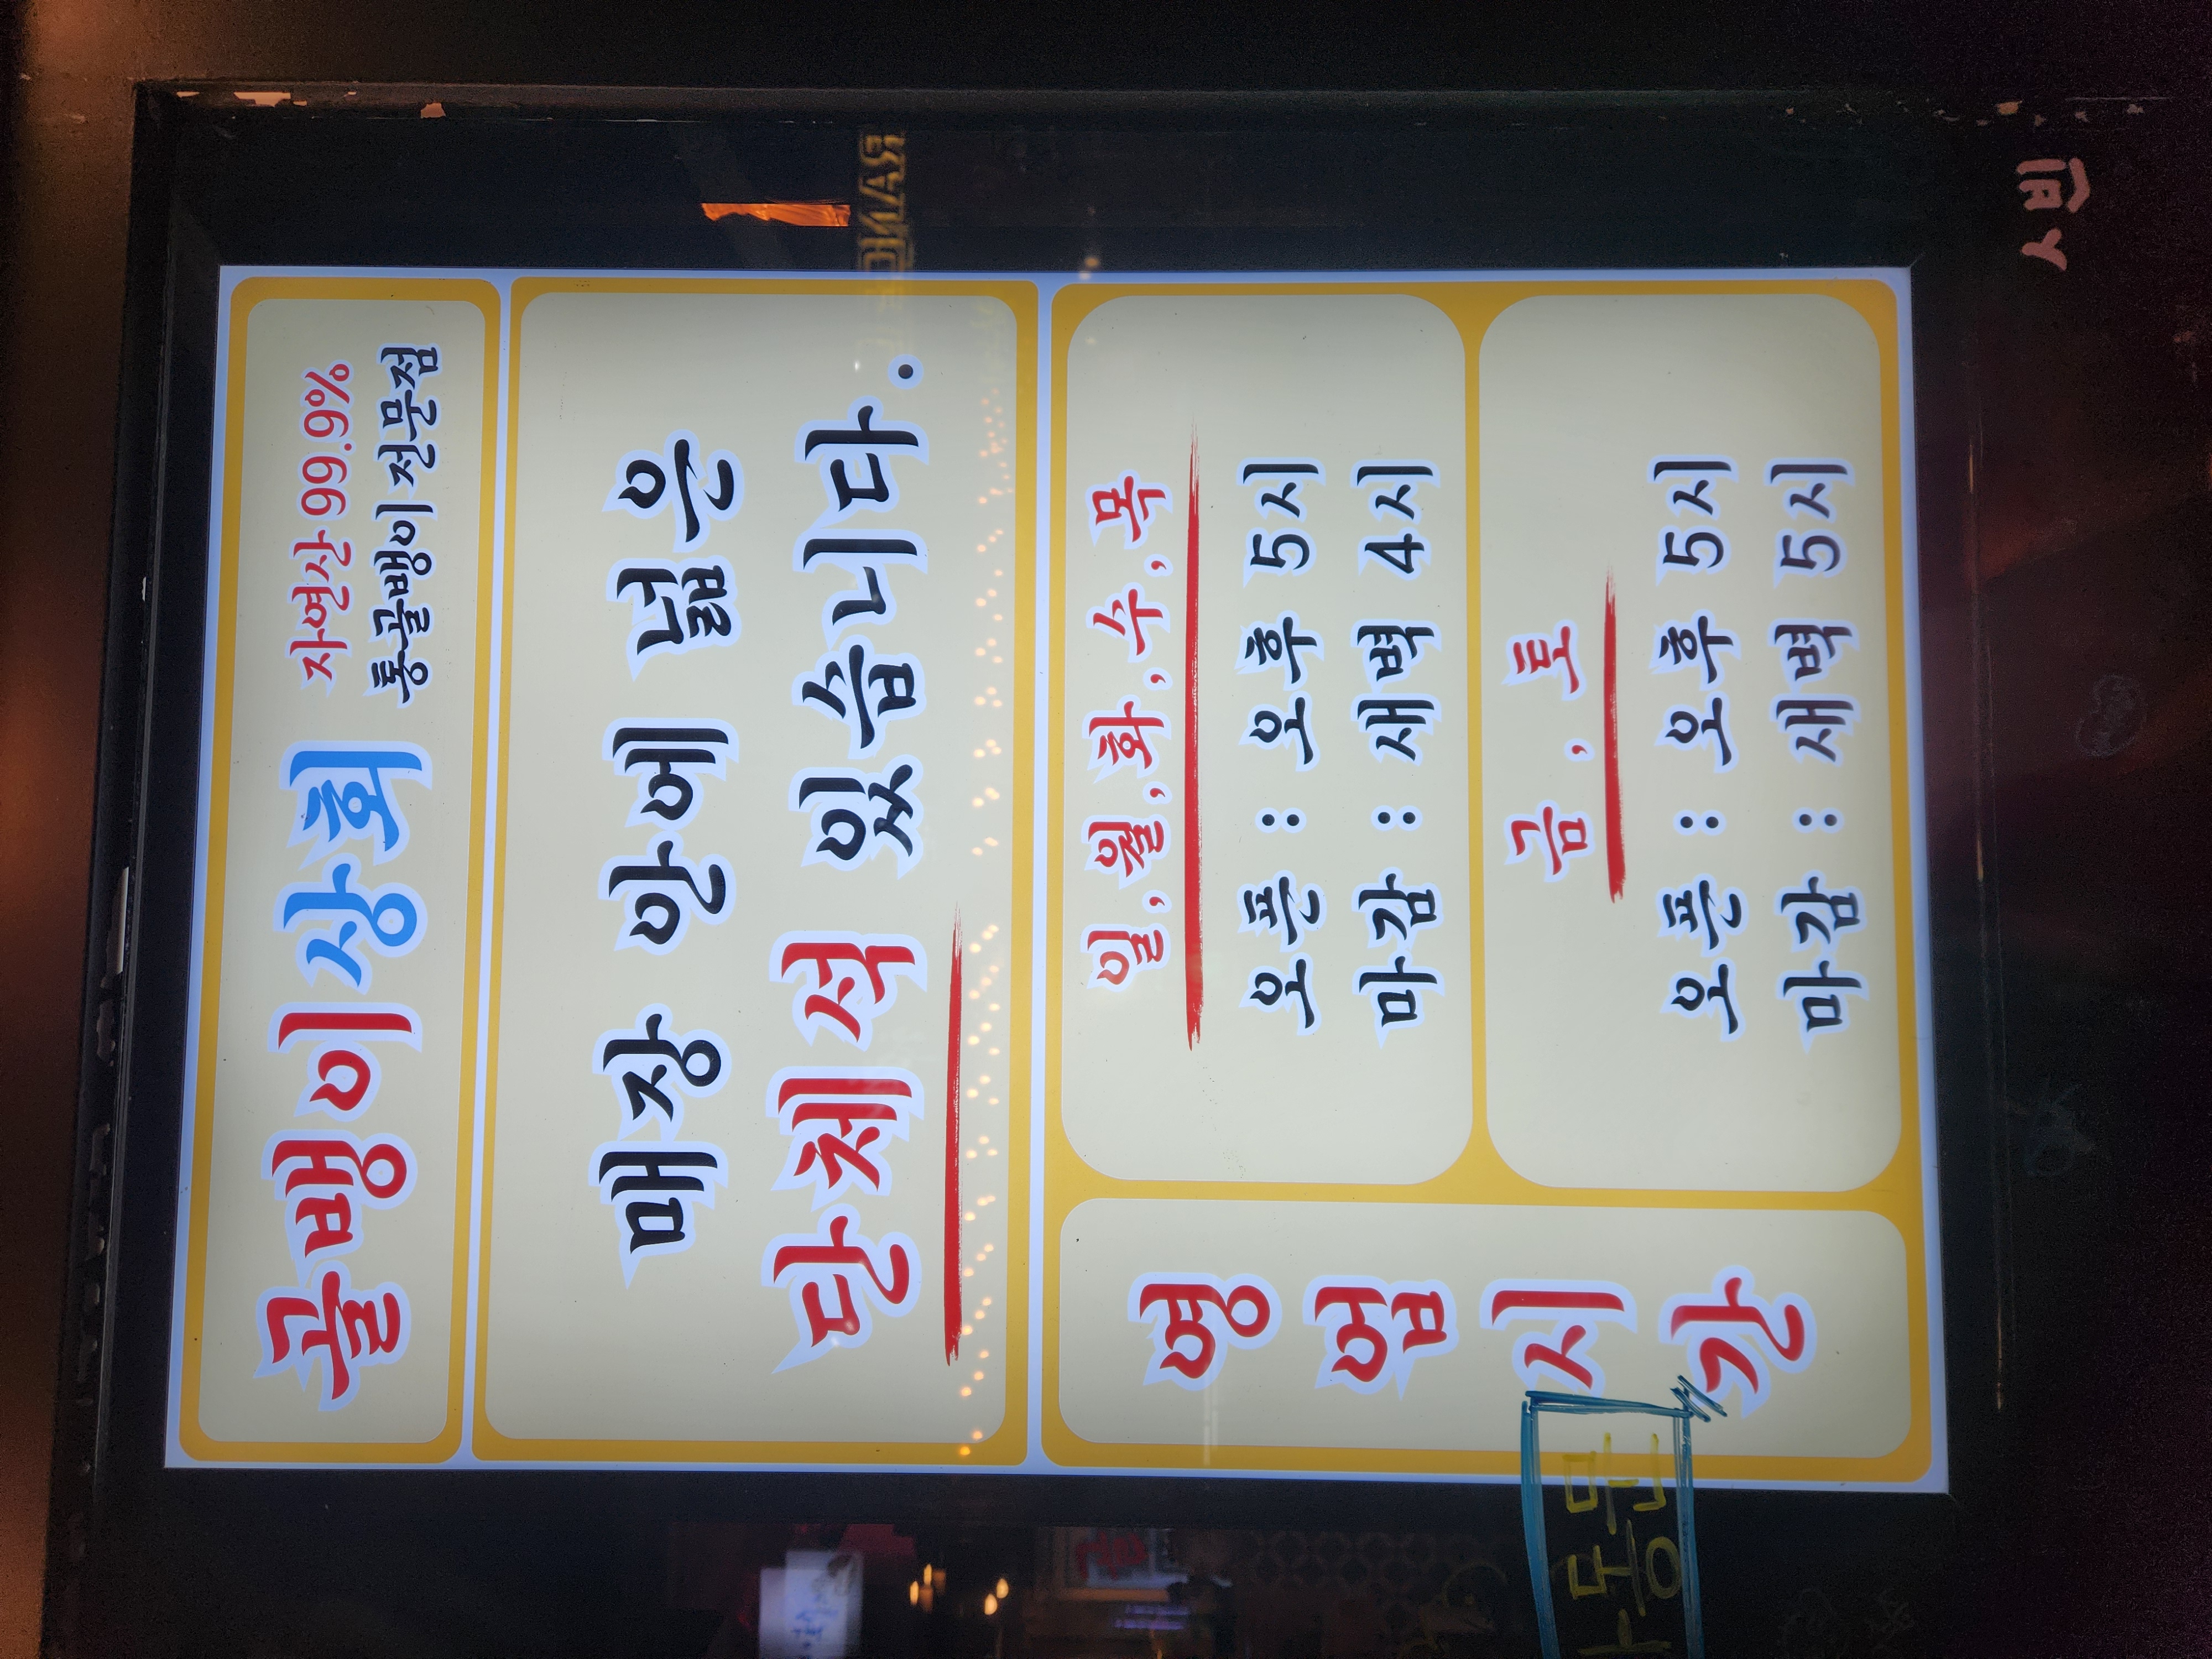 골뱅이상회
자연산 99.9%
통골뱅이 전문점
매장 안에 넓은
단체석 있습니다.
영업시간
일,월,화,수,목
오픈 : 오후 5시
마감 : 새벽 4시
금, 토
오픈 : 오후 5시
마감 : 새벽 5시